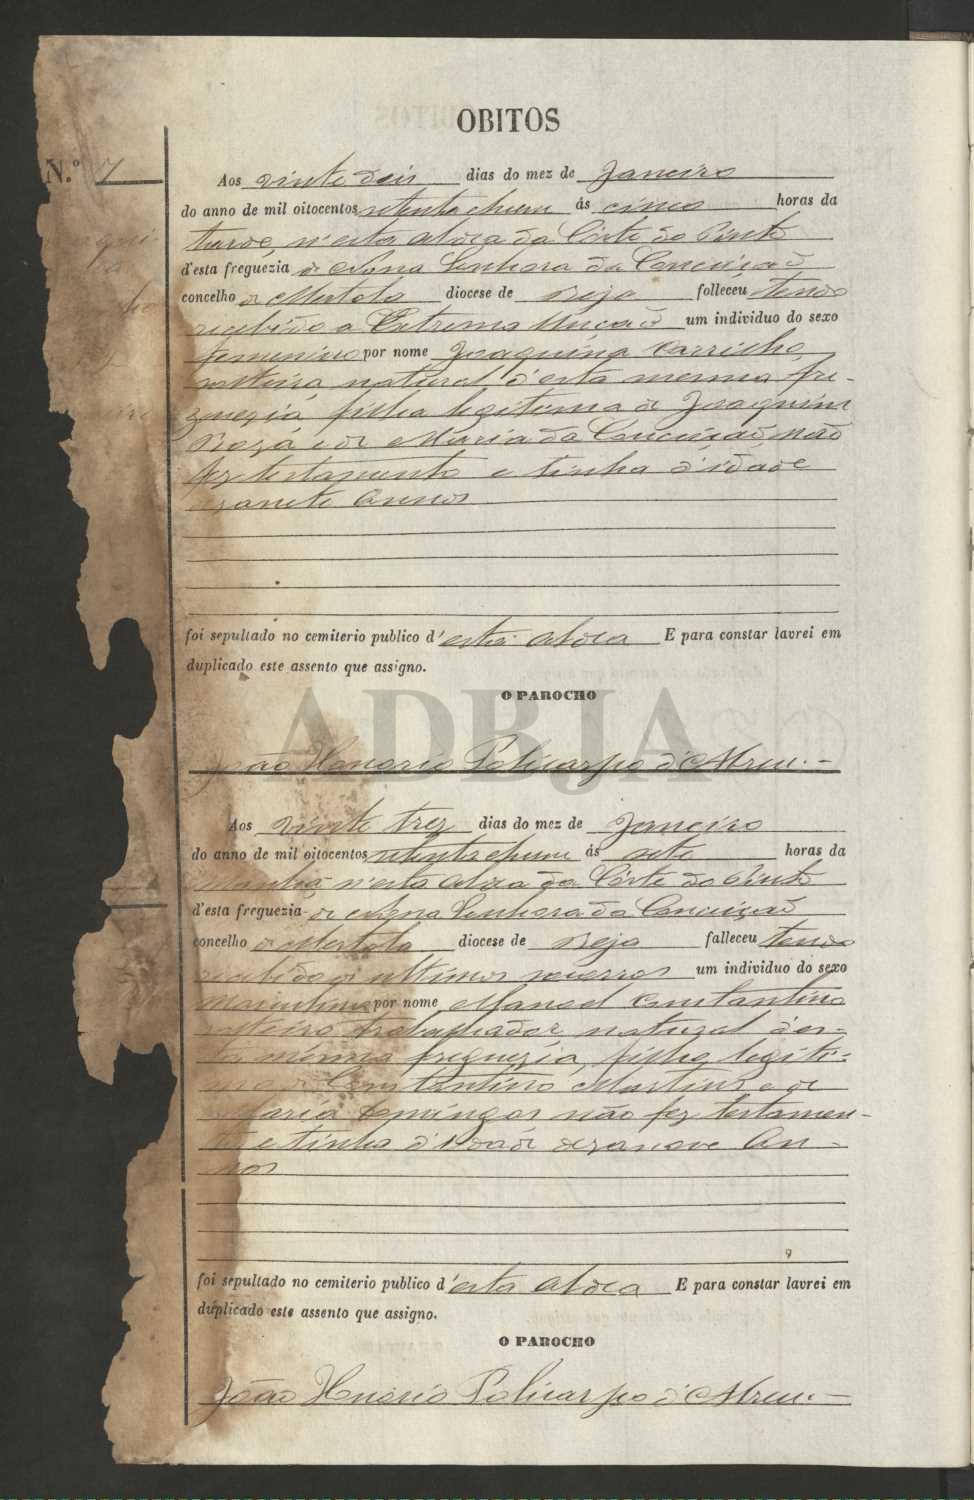 OBITOS
N.º 7
Aos vinte dois dias do mez de Janeiro
do anno de mil oitocentos setenta e hum ás cinco horas da
tarde, n'esta aldea da Côrte do Pinto
d'esta freguezia de Nossa Senhora da Conceiçaõ
concelho de Mertola diocese de Beja falleceu tendo
recebido a Extrema Uncaõ um individuo do sexo
femenino por nome Joaquina Carrilho,
solteira, natural d'esta mesma fre-
guezia, filha legitima de Joaquim
e de Maria da Conceiçaõ, não
fez testamento e tinha d'idade
dezasete annos
foi sepultado no cemiterio publico d'esta aldea E para constar lavrei em
duplicado este assento que assigno.
O PAROCHO
ADBJA
João Honorio Policarpo d'Abreu.
Aos vinte trez dias do mez de Janeiro
do anno de mil oitocentos setenta e hum ás sete horas da
Manhã n'esta aldea da Côrte do Pinto
d'esta freguezia de Nossa Senhora da Conceiçaõ
concelho de Mertola diocese de Beja falleceu tendo
recebido os ultimos socorros um individuo do sexo
masculino por nome Manoel Constantino
solteiro trabalhador natural d'es-
ta mesma freguezia, filho legiti-
mo de Constantino Martins e de
Maria Domingos não fez testamen-
to e tinha d'idade dezanove an-
nos
foi sepultado no cemiterio publico d'esta aldea E para constar lavrei em
duplicado este assento que assigno.
O PAROCHO
João Honorio Policarpo d'Abreu.